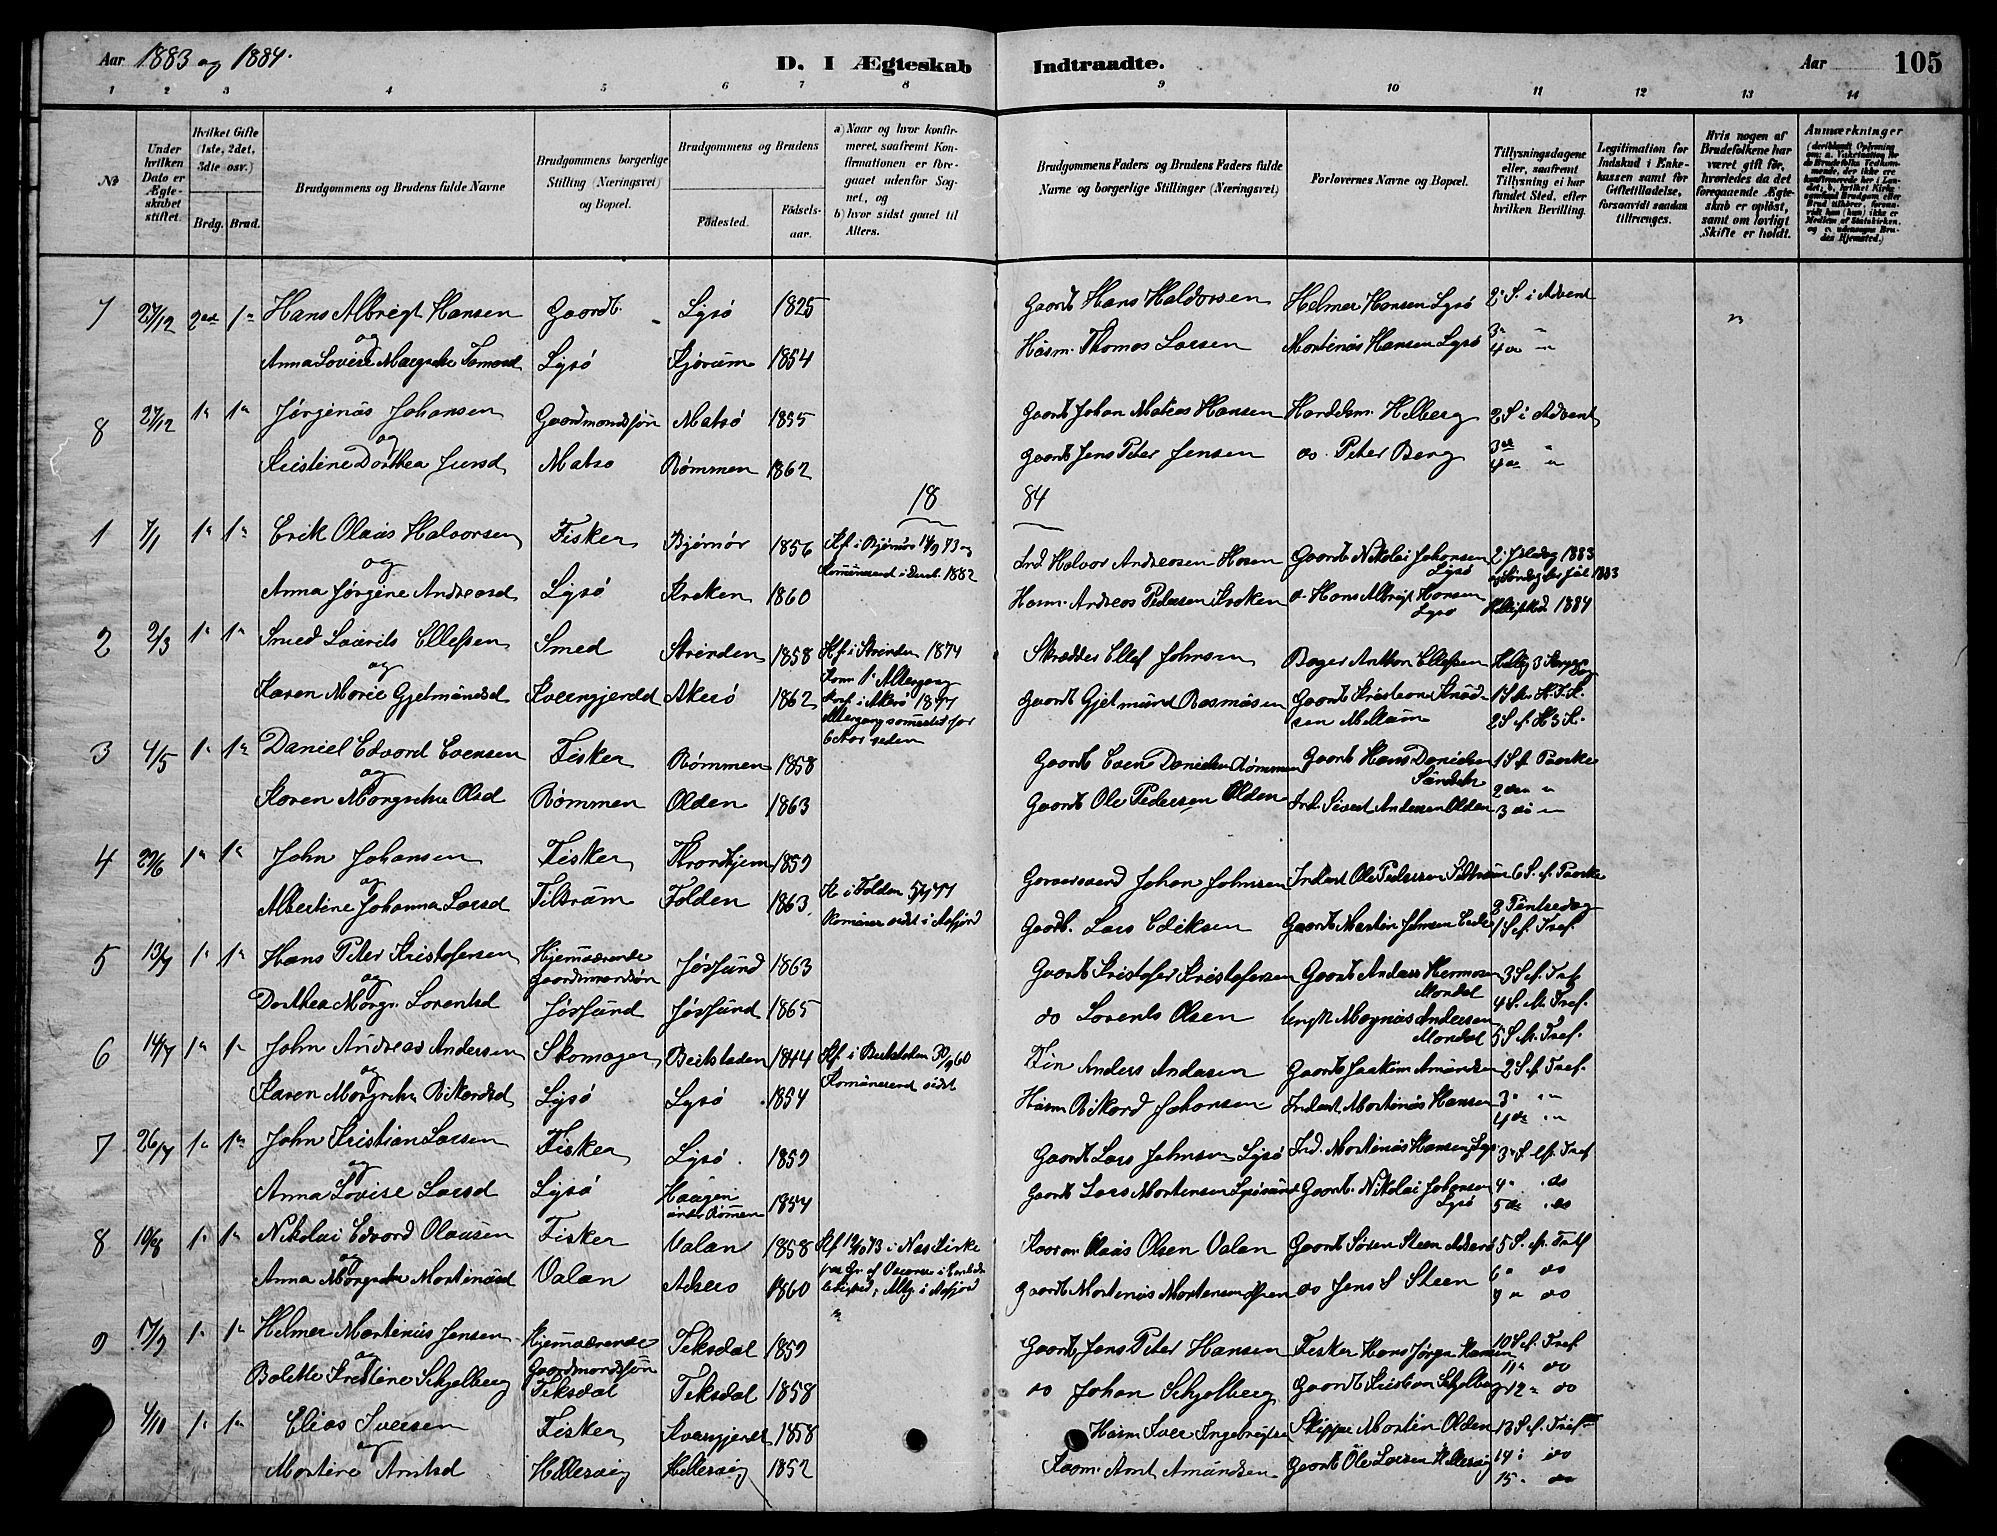 Aar 1883 og 1884. D. I Ægteskab Indtraadte. Aar 105
1 2 3 4 5 6 7 8 9 10 11 12 13 14
No
Under hvilken Dato er Ægteskabet stiftet.
Hvilket Gifte (1ste, 2det, 3die osv.)
Brdg. Brud.
Brudgommens og Brudens fulde Navne
Brudgommens borgerlige Stilling (Næringsvei) og Bopæl.
Brudgommens og Brudens
Födested. Födselsaar.
a) Naar og hvor konfirmeret, saafremt Konfirmationen er foregaaet udenfor Sognet, og
b) hvor sidst gaaet til Alters.
Brudgommens Faders og Brudens Faders fulde Navne og borgerlige Stillinger (Næringsvei)
Forlovernes Navne og Bopæl.
Tillysningsdagene eller, saafremt Tillysning ei har fundet Sted, efter hvilken Bevilling.
Legitimation for Indskud i Enkekassen samt for Giftetilladelse, forsaavidt saadan tiltrænges.
Hvis nogen af Brudefolkene har været gift før, hvorledes da det foregaaende Ægteskab er oplöst, samt om lovligt Skifte er holdt.
Anmærkninger
7 27/12 2det 1e Hans Albrigt Hansen Gaardb. Lysö 1825 Gaardb Hans Haldorsen Helmer Hansen Lysö 2. S. i Advent
og
Anna Lovise Margrete Tomasd Lysö Kjörum 1854 Husm. Thomas Larsen Mortinus Hansen Lysö 3" " 4de "
8 27/12 1e 1e Jörginus Johansen Gaardmandssön Matsö 1855 Gaardb Johan Matias Hansen Handelsm. Helberg 2 S i Advent
og
Kristine Dorthea Jensd Matsö Römmen 1862 Gaardb Jens Peter Jensen do. Peter Berg 3die " 4de "
18 84
1 7/1 1e 1e Erik Olaus Halvorsen Fisker Bjørnör 1856 Kf. i Bjørnör 14/9 73 og Ind Halvor Andreasen Hosen Gaardb Nikolai Johansen Lysö 2. Juledag 1883
og
Anna Jørgine Andreasd Lysö Kroken 1860 Husm. Andreas Pedersen Kroken do Hans Albrigt Hansen Lysö 1884
2 2/3 1e 1e Smed Laurits Ellefsen Smed Strinden 1858 Kf. i Strinden 1874 Skrædder Ellef Johnsen Bager Anthon Ellefsen
og
Karen Marie Gjetmundsd Kverngjerdet Akerö 1862 Konf. i Akerö 1877 Gaardb Gjetmund Rasmusen Gaardb Kristian Knudsen Meltum
3 4/5 1e 1e Daniel Edvard Evensen Fisker Römmen 1858 Gaardb Even Danielsen Römmen Gaardb Hans Danielsen 1 S. e. Paaske
og
Karen Margrethe Olsd Römmen Olden 1863 Gaardb Ole Pedersen Olden Ind. Sivert Andersen Olden 2den " 3die "
4 22/6 1e 1e John Johansen Fisker Throndhjem 1859 Johan Johnsen Inderst Ole Pedersen Feltrum 6 S. e. Paaske
og
Albertine Johanna Larsd Feltrum Folden 1863 K. i Folden 5/7 77 Gaardb. Lars Eriksen Gaardb Martin Johnsen 2 Pintsedag 1 S. e. Tref.
5 13/7 1e 1e Hans Peter Kristofersen Hjemværende Gaardmandssön Jössund 1863 Gaardb Kristofer Kristofersen Gaardb Anders Hermosen Mandal 3 S. e. Tref.
og
Dorthea Margr. Lorentsd Jössund Jössund 1865 do Lorents Olsen Ungk Magnus Andersen Mandal 4 S. e. Tref. 5 S. e. Tref.
6 14/7 1e 1e John Andreas Andersen Skomager Beitstaden 1844 Kf. i Beitstaden 30/9 60 Anders Andersen Gaardb Joakim Amundsen 2 S. e. Tref.
og
Karen Margrethe Rikardsd Lysö Lysö 1854 Husm Rikard Johansen Inderst Mortinus Hansen 3" " 4de "
7 26/7 1e 1e John Kristian Larsen Fisker Lysö 1859 Gaardb Lars Johnsen Lysö Ind. Mortinus Hansen Lysö 3" S. eft. Tref
og
Anna Lovise Larsd Lysö Haugen under Römmen 1854 Gaardb Lars Mortensen Lysösund Gaardb. Nikolai Johansen Lysö 4" do 5de do
8 10/8 1e 1e Nikolai Edvard Olausen Fisker Valan 1858 Kf 12/10 73 i Nes Kirke Husm Olaus Olsen Valan Gaardb Sören Steen 5 S. e. Tref
og
Anna Margrethe Mortinusd Valan 1860 Gaardb Mortinus Mortensen do Jens S Steen 6" do 7" do
9 17/9 1e 1e Helmer Martinus Jensen Hjemværende Gaardmandssön Teksdal 1859 Gaardb Jens Peter Hansen Fisker Hans Jörgen Hansen 10 S. e. Tref
og
Bolette Kristine Schjelberg Teksdal Teksdal 1858 do Johan Schjelberg Gaardb Kristian Schjelberg 11" do 12" do
4/10 1e 1e Elias Iversen Fisker Kverngjerdet 1858 Husm Iver Ingebrigtsen Skipper Martin Olden 13 S. e. Tref
og
Martine Arntsd Hellesvig Hellesvig 1852 Husm Arnt Amundsen Gaardb Ole Larsen Hellesvig 14" do 15" do